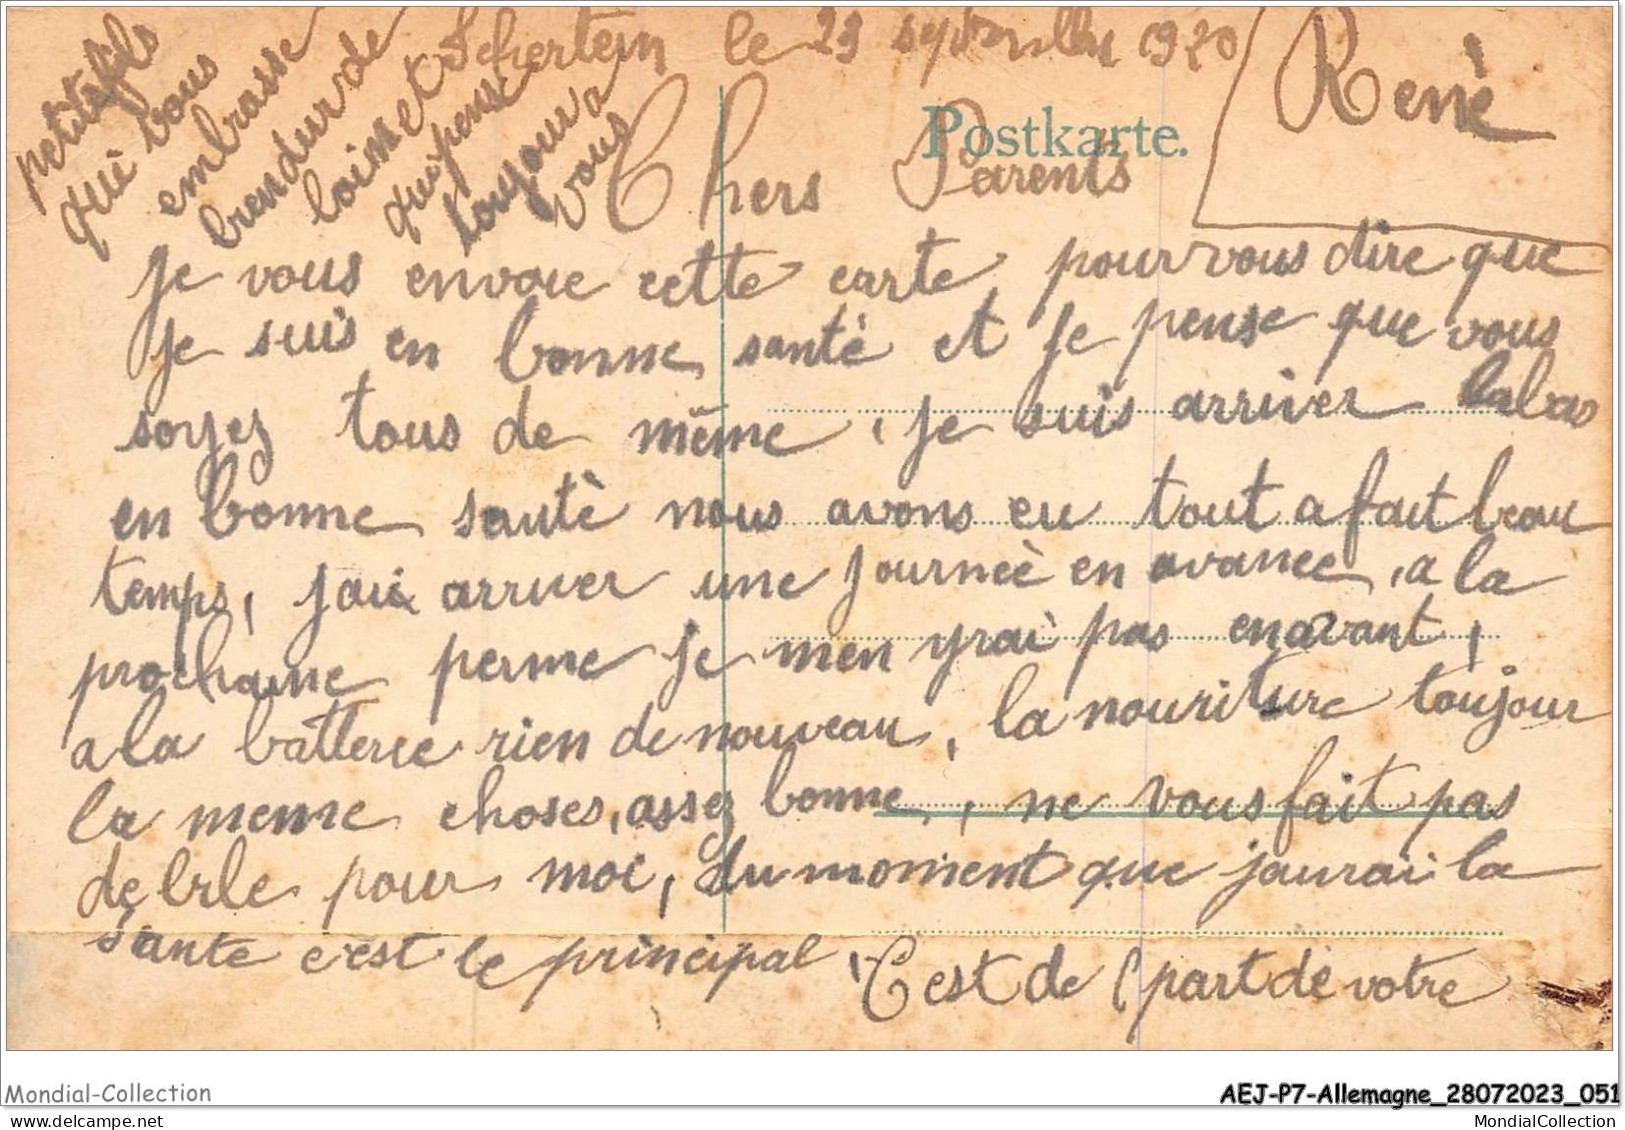 Schertein le 23 septembre 1920
René
Postkarte.
Chers Parents
je vous envoie cette carte pour vous dire que
je suis en bonne santè et je pense que vous
soyez tous de même, je suis arriver labas
en bonne santè nous avons eu tout a fait beau
temps, jai arriver une journeè en avance, a la
prochaine perme je men yrai pas enavant,
a la batterie rien de nouveau, la nouriture toujour
la meme choses, assez bonne, ne vous fait pas
de bile pour moi, du moment que jaurai la
sante c'est le principal, C'est de l part de votre
petitsfils
què vous
embrasse
bien dur de
loins et
qui pense
toujour a
vous
Mondial-Collection
AEJ-P7-Allemagne_28072023_051
MondialCollection